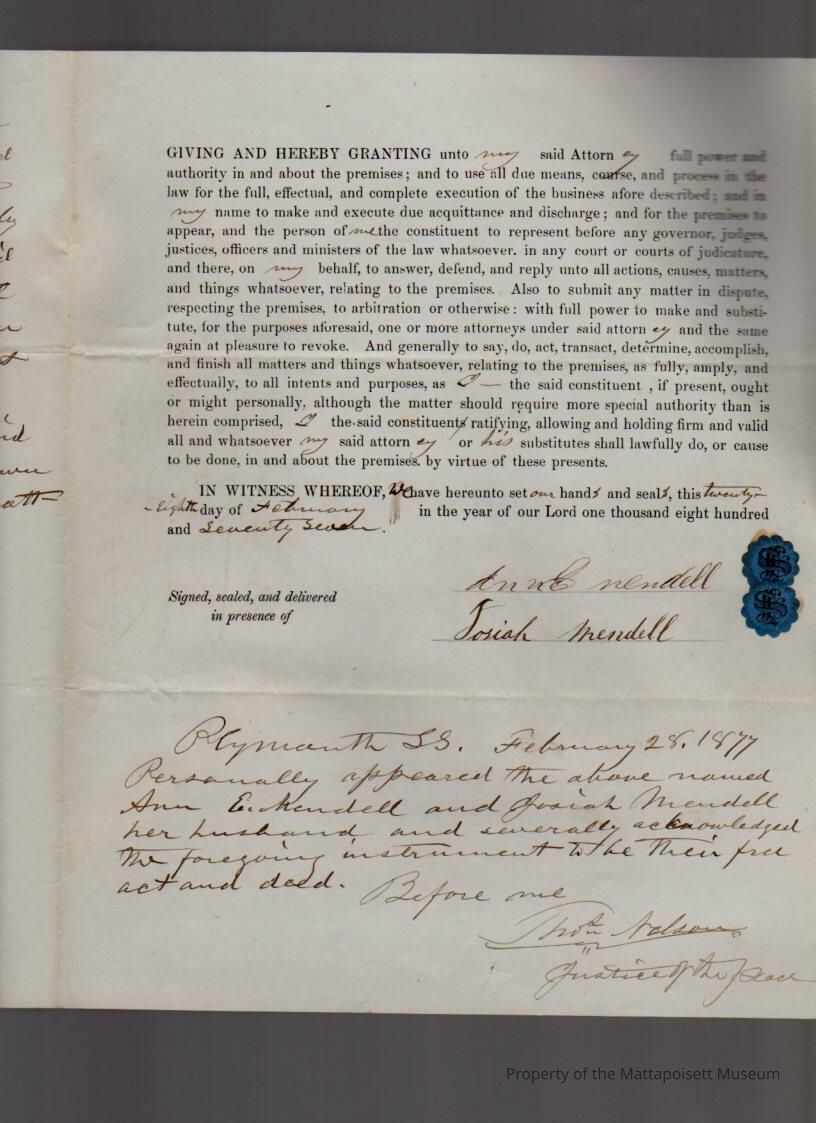 GIVING AND HEREBY GRANTING unto my said Attorn ey full power and
authority in and about the premises; and to use all due means, course, and process in the
law for the full, effectual, and complete execution of the business afore described; and in
my name to make and execute due acquittance and discharge; and for the premises to
appear, and the person of me the constituent to represent before any governor, judges,
justices, officers and ministers of the law whatsoever. in any court or courts of judicature,
and there, on my behalf, to answer, defend, and reply unto all actions, causes, matters,
and things whatsoever, relating to the premises. Also to submit any matter in dispute,
respecting the premises, to arbitration or otherwise: with full power to make and substi-
tute, for the purposes aforesaid, one or more attorneys under said attorn ey and the same
again at pleasure to revoke. And generally to say, do, act, transact, determine, accomplish,
and finish all matters and things whatsoever, relating to the premises, as fully, amply, and
effectually, to all intents and purposes, as I — the said constituent , if present, ought
or might personally, although the matter should require more special authority than is
herein comprised, I the said constituent ratifying, allowing and holding firm and valid
all and whatsoever my said attorn ey or his substitutes shall lawfully do, or cause
to be done, in and about the premises. by virtue of these presents.
IN WITNESS WHEREOF, We have hereunto set our hands and seals, this twenty-
-Eighth day of February in the year of our Lord one thousand eight hundred
and Seventy Seven.
Ann E Mendell
Signed, sealed, and delivered
in presence of
Josiah Mendell
Plymouth SS. February 28. 1877
Personally appeared the above named
Ann E. Mendell and Josiah Mendell
her husband and severally acknowledged
the foregoing instrument to be their free
act and deed. Before me
Thos. Nelson
Justice of the Peace
Property of the Mattapoisett Museum